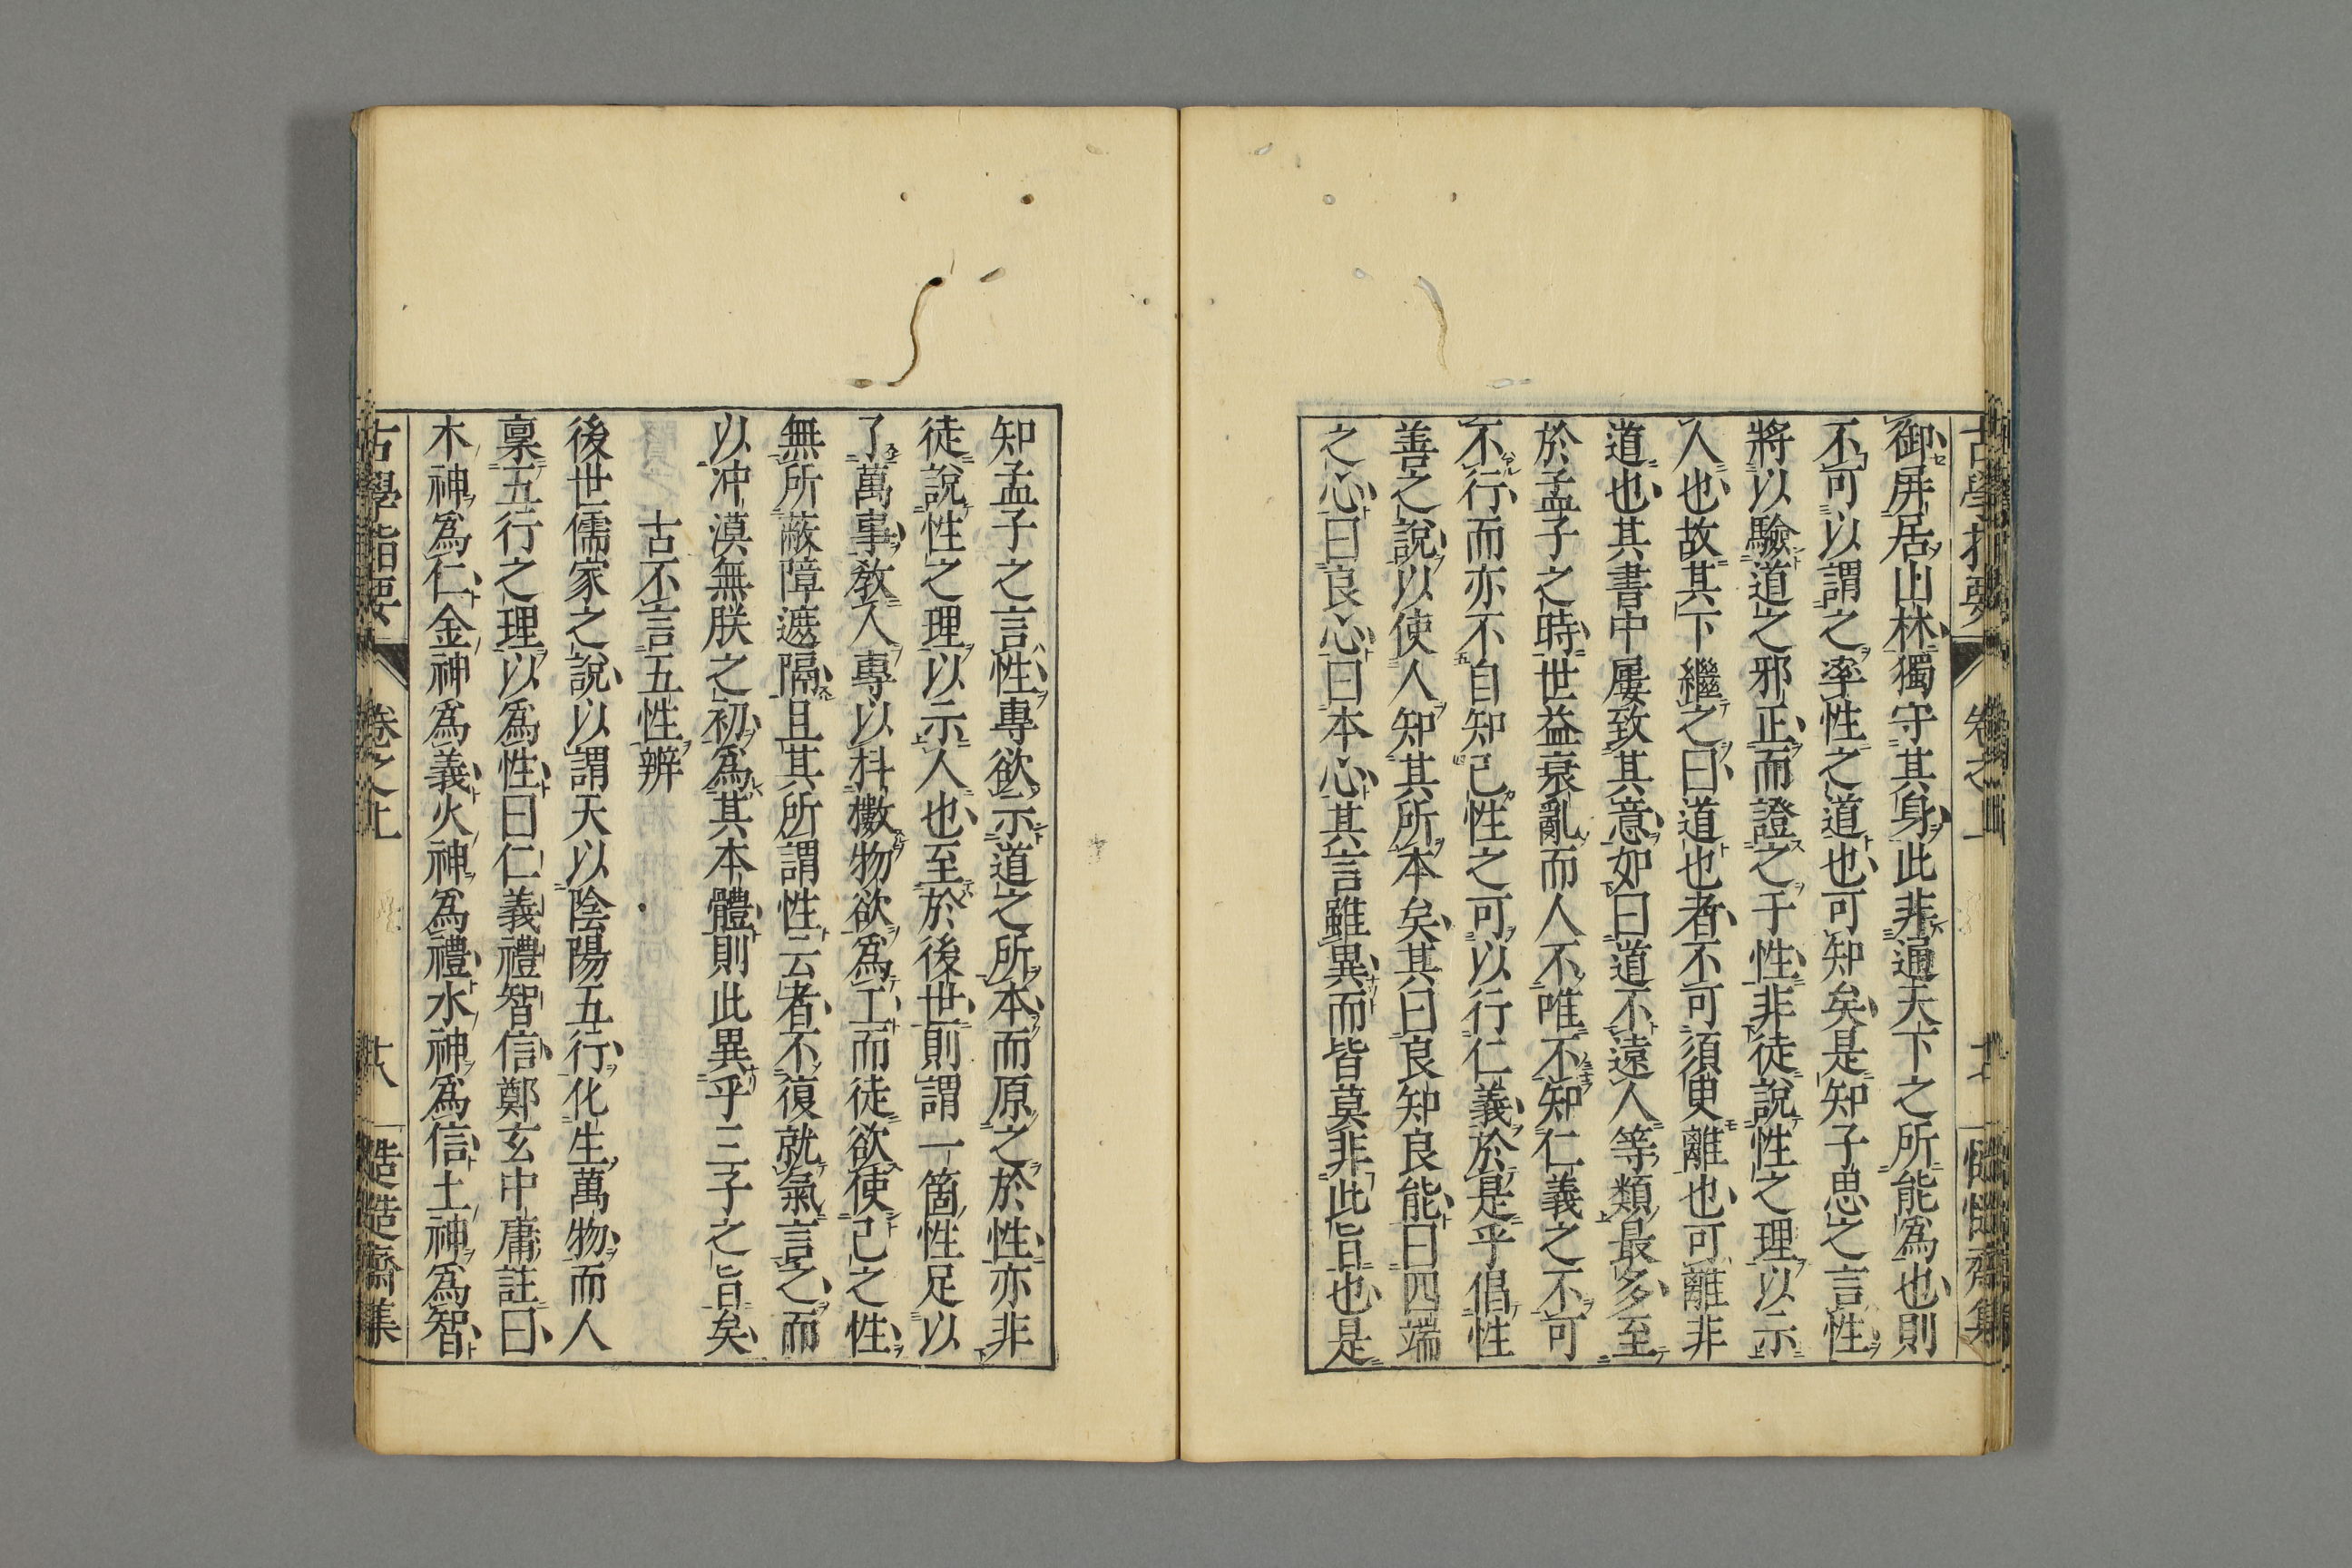 古學指要
卷之上
十七
慥慥齋集
御屏居山林獨守其身此非通天下之所能爲也則
不可以謂之率性之道也可知矣是知子思之言性
將以驗道之邪正而證之于性非徒說性之理以示
人也故其下繼之曰道也者不可須臾離也可離非
道也其書中屢致其意如曰道不遠人等類最多至
於孟子之時世益衰亂而人不唯不知仁義之不可
不行而亦不自知己性之可以行仁義於是乎倡性
善之說以使人知其所本矣其曰良知良能曰四端
之心曰良心曰本心其言雖異而皆莫非此旨也是
知孟子之言性專欲示道之所本而原之於性亦非
徒說性之理以示人也至於後世則謂一箇性足以
了萬事敎人專以科檄物欲爲工而徒欲使己之性
無所蔽障遮隔且其所謂性云者不復就氣言之而
以冲漠無朕之初爲其本體則此異乎三子之旨矣
古不言五性辨
後世儒家之說以謂天以陰陽五行化生萬物而人
稟五行之理以爲性曰仁義禮智信鄭玄中庸註曰
木神爲仁金神爲義火神爲禮水神爲信土神爲智
古學指要
卷之上
十八
慥慥齋集